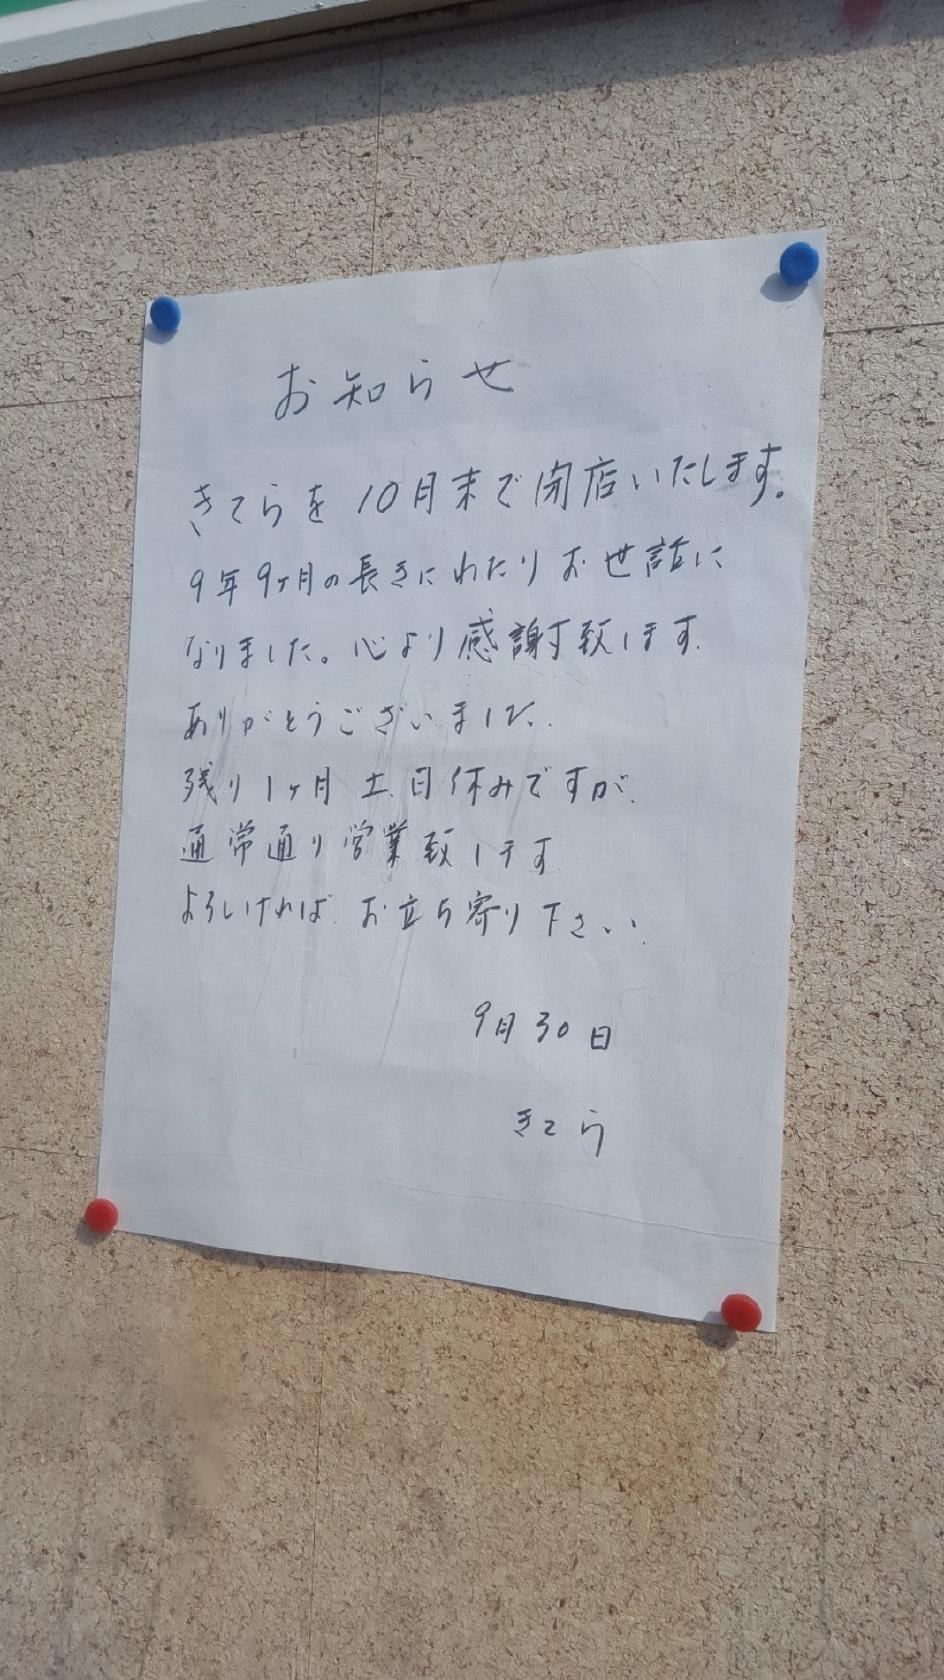 お知らせ
きてらを10月末で閉店いたします。
9年9ヶ月の長きにわたりお世話に
なりました。心より感謝致します.
ありがとうございました.
残り1ヶ月土.日休みですが.
通常通り営業致します
よろしければ.お立ち寄り下さい.
9月30日
きてら